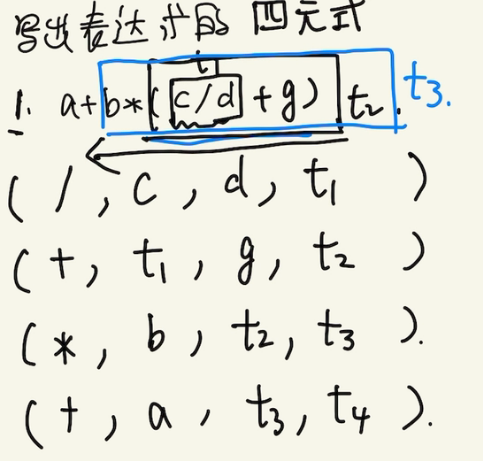 写出表达式的 四元式
1. a+b*(c/d+g) t2. t3.
t
(/, c, d, t1)
(+, t1, g, t2)
(*, b, t2, t3).
(+, a, t3, t4).